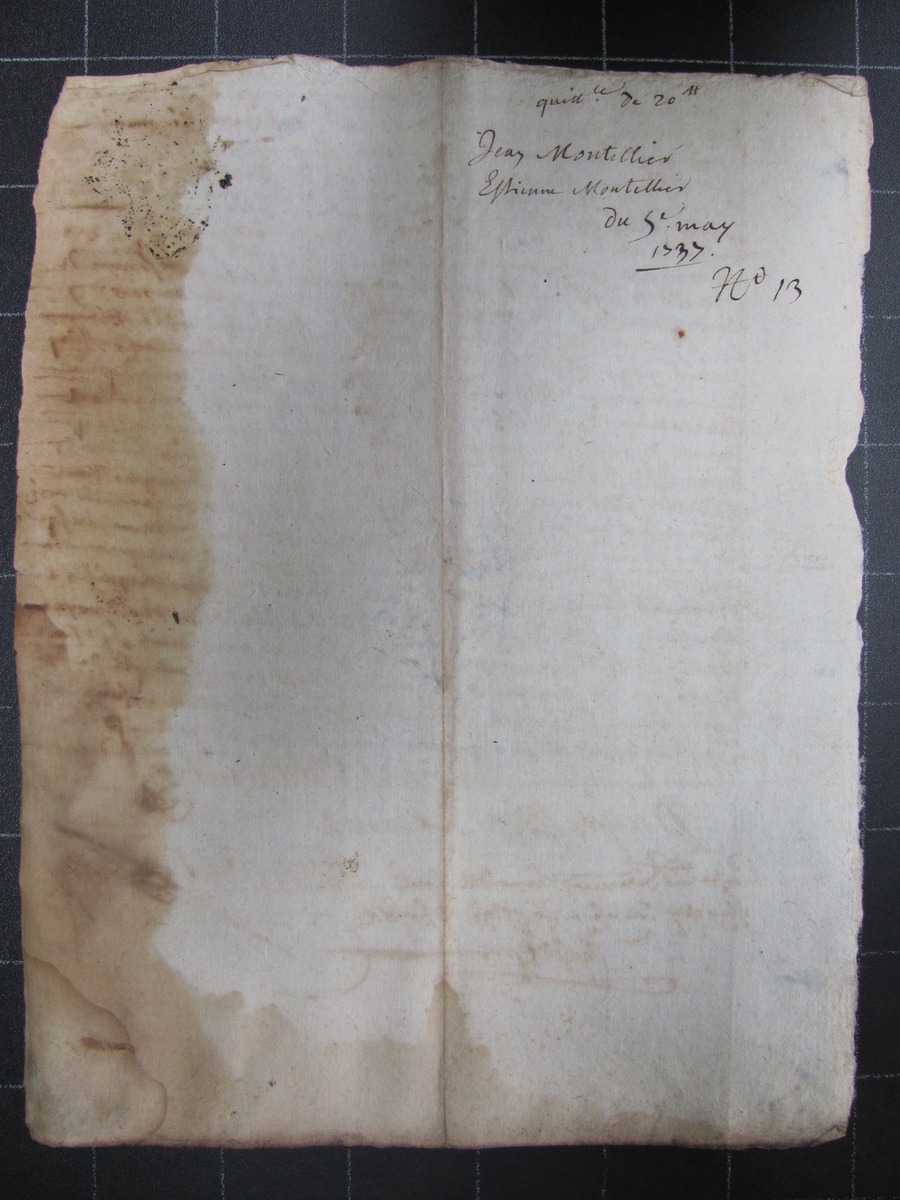 quitt.ce de 20 tt
Jean Montellier
Estienne Montellier
du 5e. may
1737.
No 13